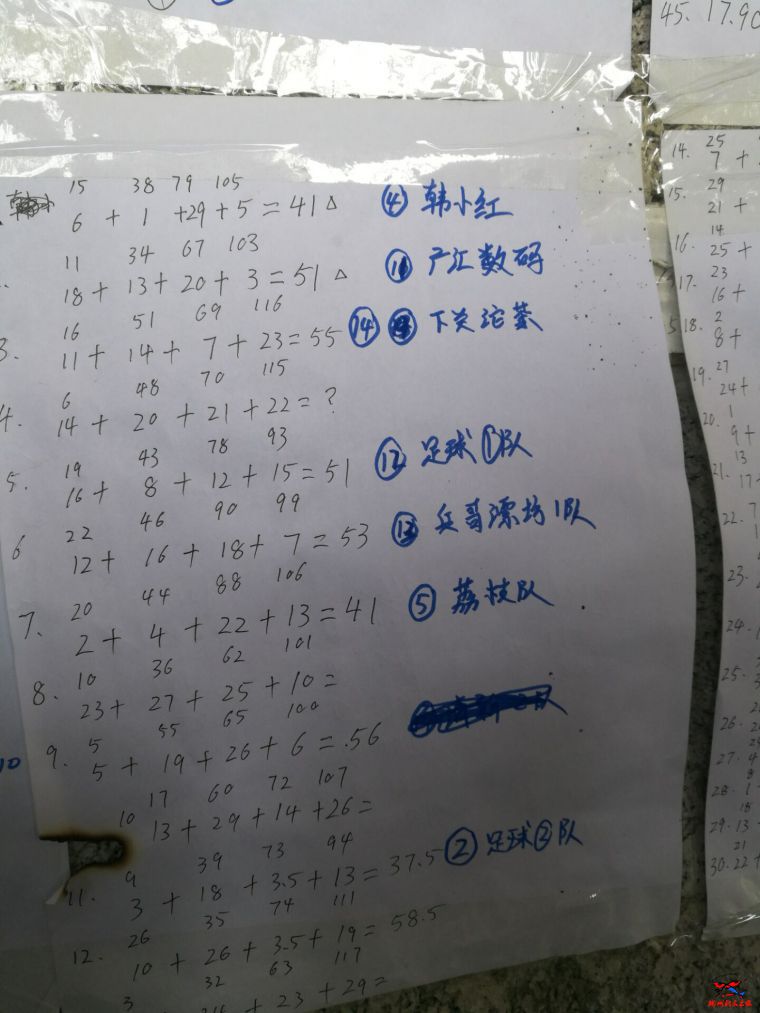 45. 17.90
15 38 79 105
6 + 1 + 29 + 5 = 41 △ ④ 韩小红
11 34 67 103
18 + 13 + 20 + 3 = 51 △ 产汇数码
16 51 69 116
3. 11 + 14 + 7 + 23 = 55 ⑭ 下关沱茶
6 48 70 115
4. 14 + 20 + 21 + 22 = ?
19 43 78 93
5. 16 + 8 + 12 + 15 = 51 ⑫ 足球①队
22 46 90 99
6 12 + 16 + 18 + 7 = 53 ⑬ 兵哥漂坊1队
20 44 88 106
7. 2 + 4 + 22 + 13 = 41 ⑤ 荔枝队
10 36 62 101
8. 23 + 27 + 25 + 10 =
5 55 65 100
9. 5 + 19 + 26 + 6 = .56
17 60 72 107
10 13 + 29 + 14 + 26 =
9 39 73 94
11. 3 + 18 + 3.5 + 13 = 37.5 ② 足球②队
26 35 74 111
12. 10 + 26 + 3.5 + 19 = 58.5
3 32 63 117
+ 23 + 29 =
25
14. 7 +
29
15. 21 +
14
16. 25 +
23
17. 16 +
2
18. 8 +
27
19. 24 +
1
20. 9 +
13
21. 17 +
7
22.
23.
24.
25.
26.
27. 4
8
28. 1
18
29. 13
21
30. 22 +